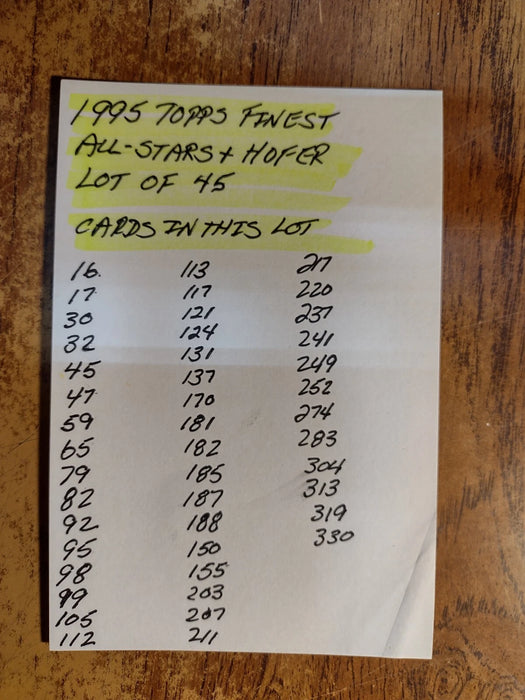 1995 TOPPS FINEST
ALL-STARS + HOFER
LOT OF 45
CARDS IN THIS LOT
16
17
30
32
45
47
59
65
79
82
92
95
98
99
105
112
113
117
121
124
131
137
170
181
182
185
187
188
150
155
203
207
211
217
220
237
241
249
252
274
283
304
313
319
330